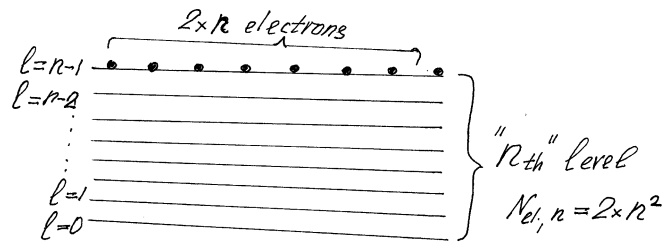 2×n electrons
l=n-1
l=n-2
l=1
l=0
"n th" level
Nel, n = 2×n²